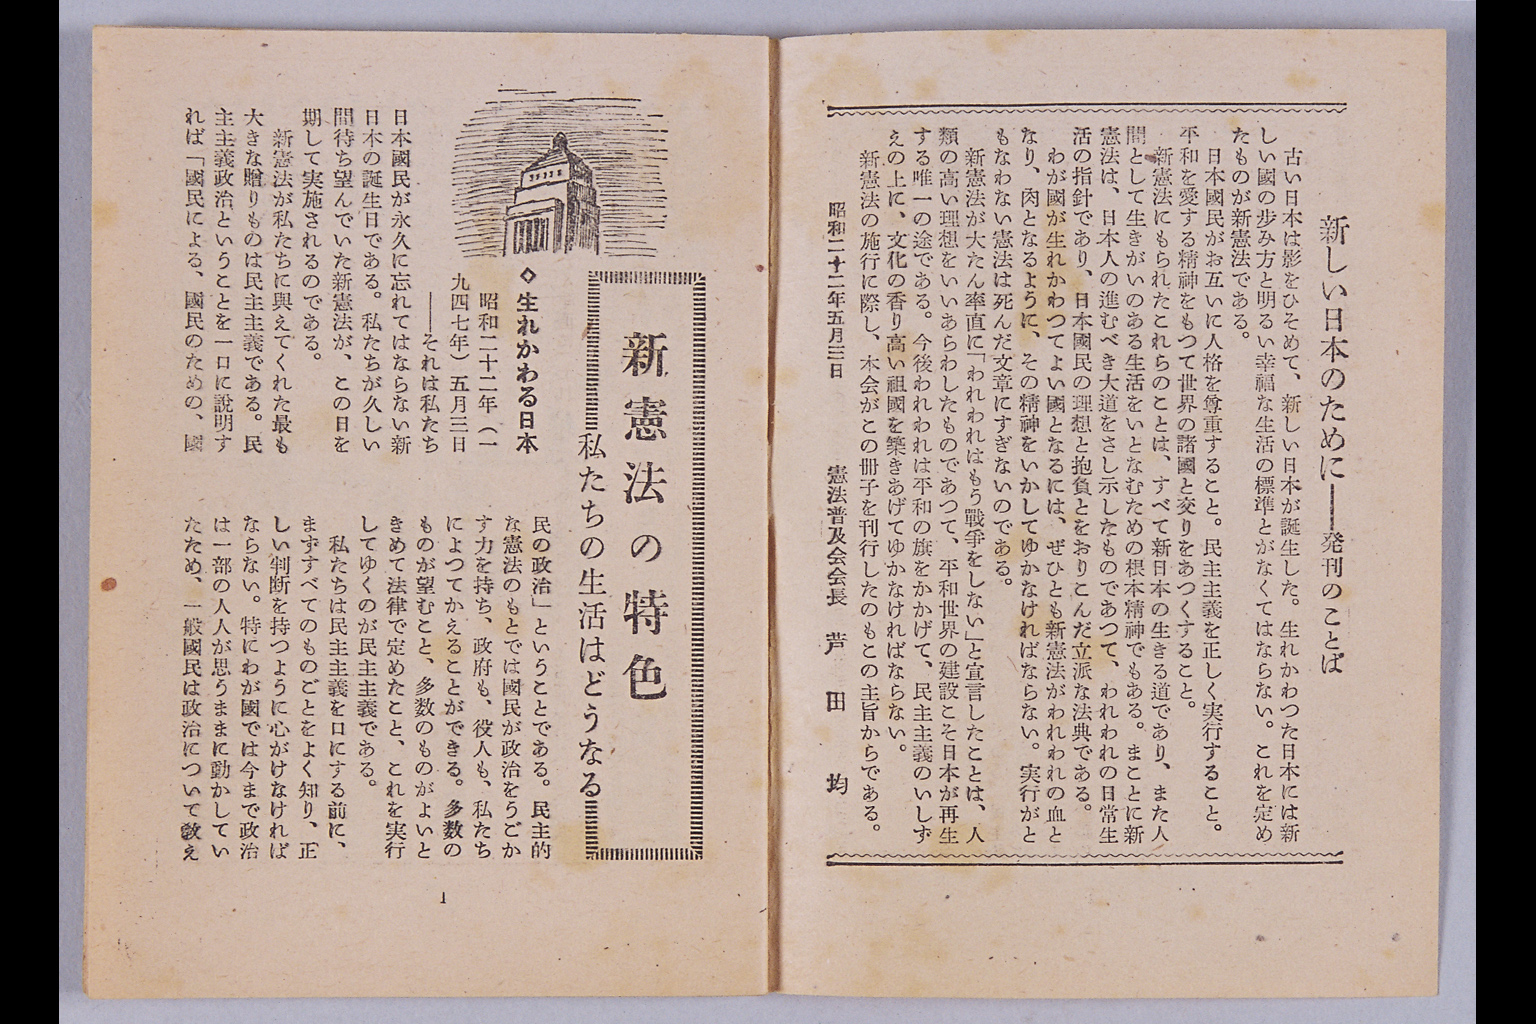 新しい日本のために――発刊のことば
古い日本は影をひそめて、新しい日本が誕生した。生れかわつた日本には新
しい國の歩み方と明るい幸福な生活の標準とがなくてはならない。これを定め
たものが新憲法である。
日本國民がお互いに人格を尊重すること。民主主義を正しく実行すること。
平和を愛する精神をもつて世界の諸國と交りをあつくすること。
新憲法にもられたこれらのことは、すべて新日本の生きる道であり、また人
間として生きがいのある生活をいとなむための根本精神でもある。まことに新
憲法は、日本人の進むべき大道をさし示したものであつて、われわれの日常生
活の指針であり、日本國民の理想と抱負とをおりこんだ立派な法典である。
わが國が生れかわつてよい國となるには、ぜひとも新憲法がわれわれの血と
なり、肉となるように、その精神をいかしてゆかなければならない。実行がと
もなわない憲法は死んだ文章にすぎないのである。
新憲法が大たん率直に「われわれはもう戰爭をしない」と宣言したことは、人
類の高い理想をいいあらわしたものであつて、平和世界の建設こそ日本が再生
する唯一の途である。今後われわれは平和の旗をかかげて、民主主義のいしず
えの上に、文化の香り高い祖國を築きあげてゆかなければならない。
新憲法の施行に際し、本会がこの冊子を刊行したのもこの主旨からである。
昭和二十二年五月三日
憲法普及会会長 芦田均
新憲法の特色
私たちの生活はどうなる
◇生れかわる日本
昭和二十二年（一
九四七年）五月三日
――それは私たち
日本國民が永久に忘れてはならない新
日本の誕生日である。私たちが久しい
間待ち望んでいた新憲法が、この日を
期して実施されるのである。
新憲法が私たちに與えてくれた最も
大きな贈りものは民主主義である。民
主主義政治ということを一口に説明す
れば「國民による、國民のための、國
民の政治」ということである。民主的
な憲法のもとでは國民が政治をうごか
す力を持ち、政府も、役人も、私たち
によつてかえることができる。多数の
ものが望むこと、多数のものがよいと
きめて法律で定めたこと、これを実行
してゆくのが民主主義である。
私たちは民主主義を口にする前に、
まずすべてのものごとをよく知り、正
しい判断を持つように心がけなければ
ならない。特にわが國では今まで政治
は一部の人人が思うままに動かしてい
たため、一般國民は政治について敎え
1